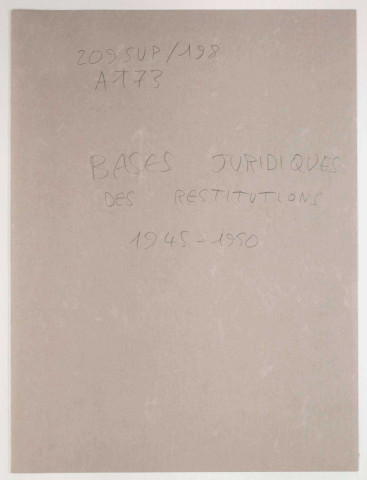 209SUP/198
A173
BASES JURIDIQUES
DES RESTITUTIONS
1945-1950